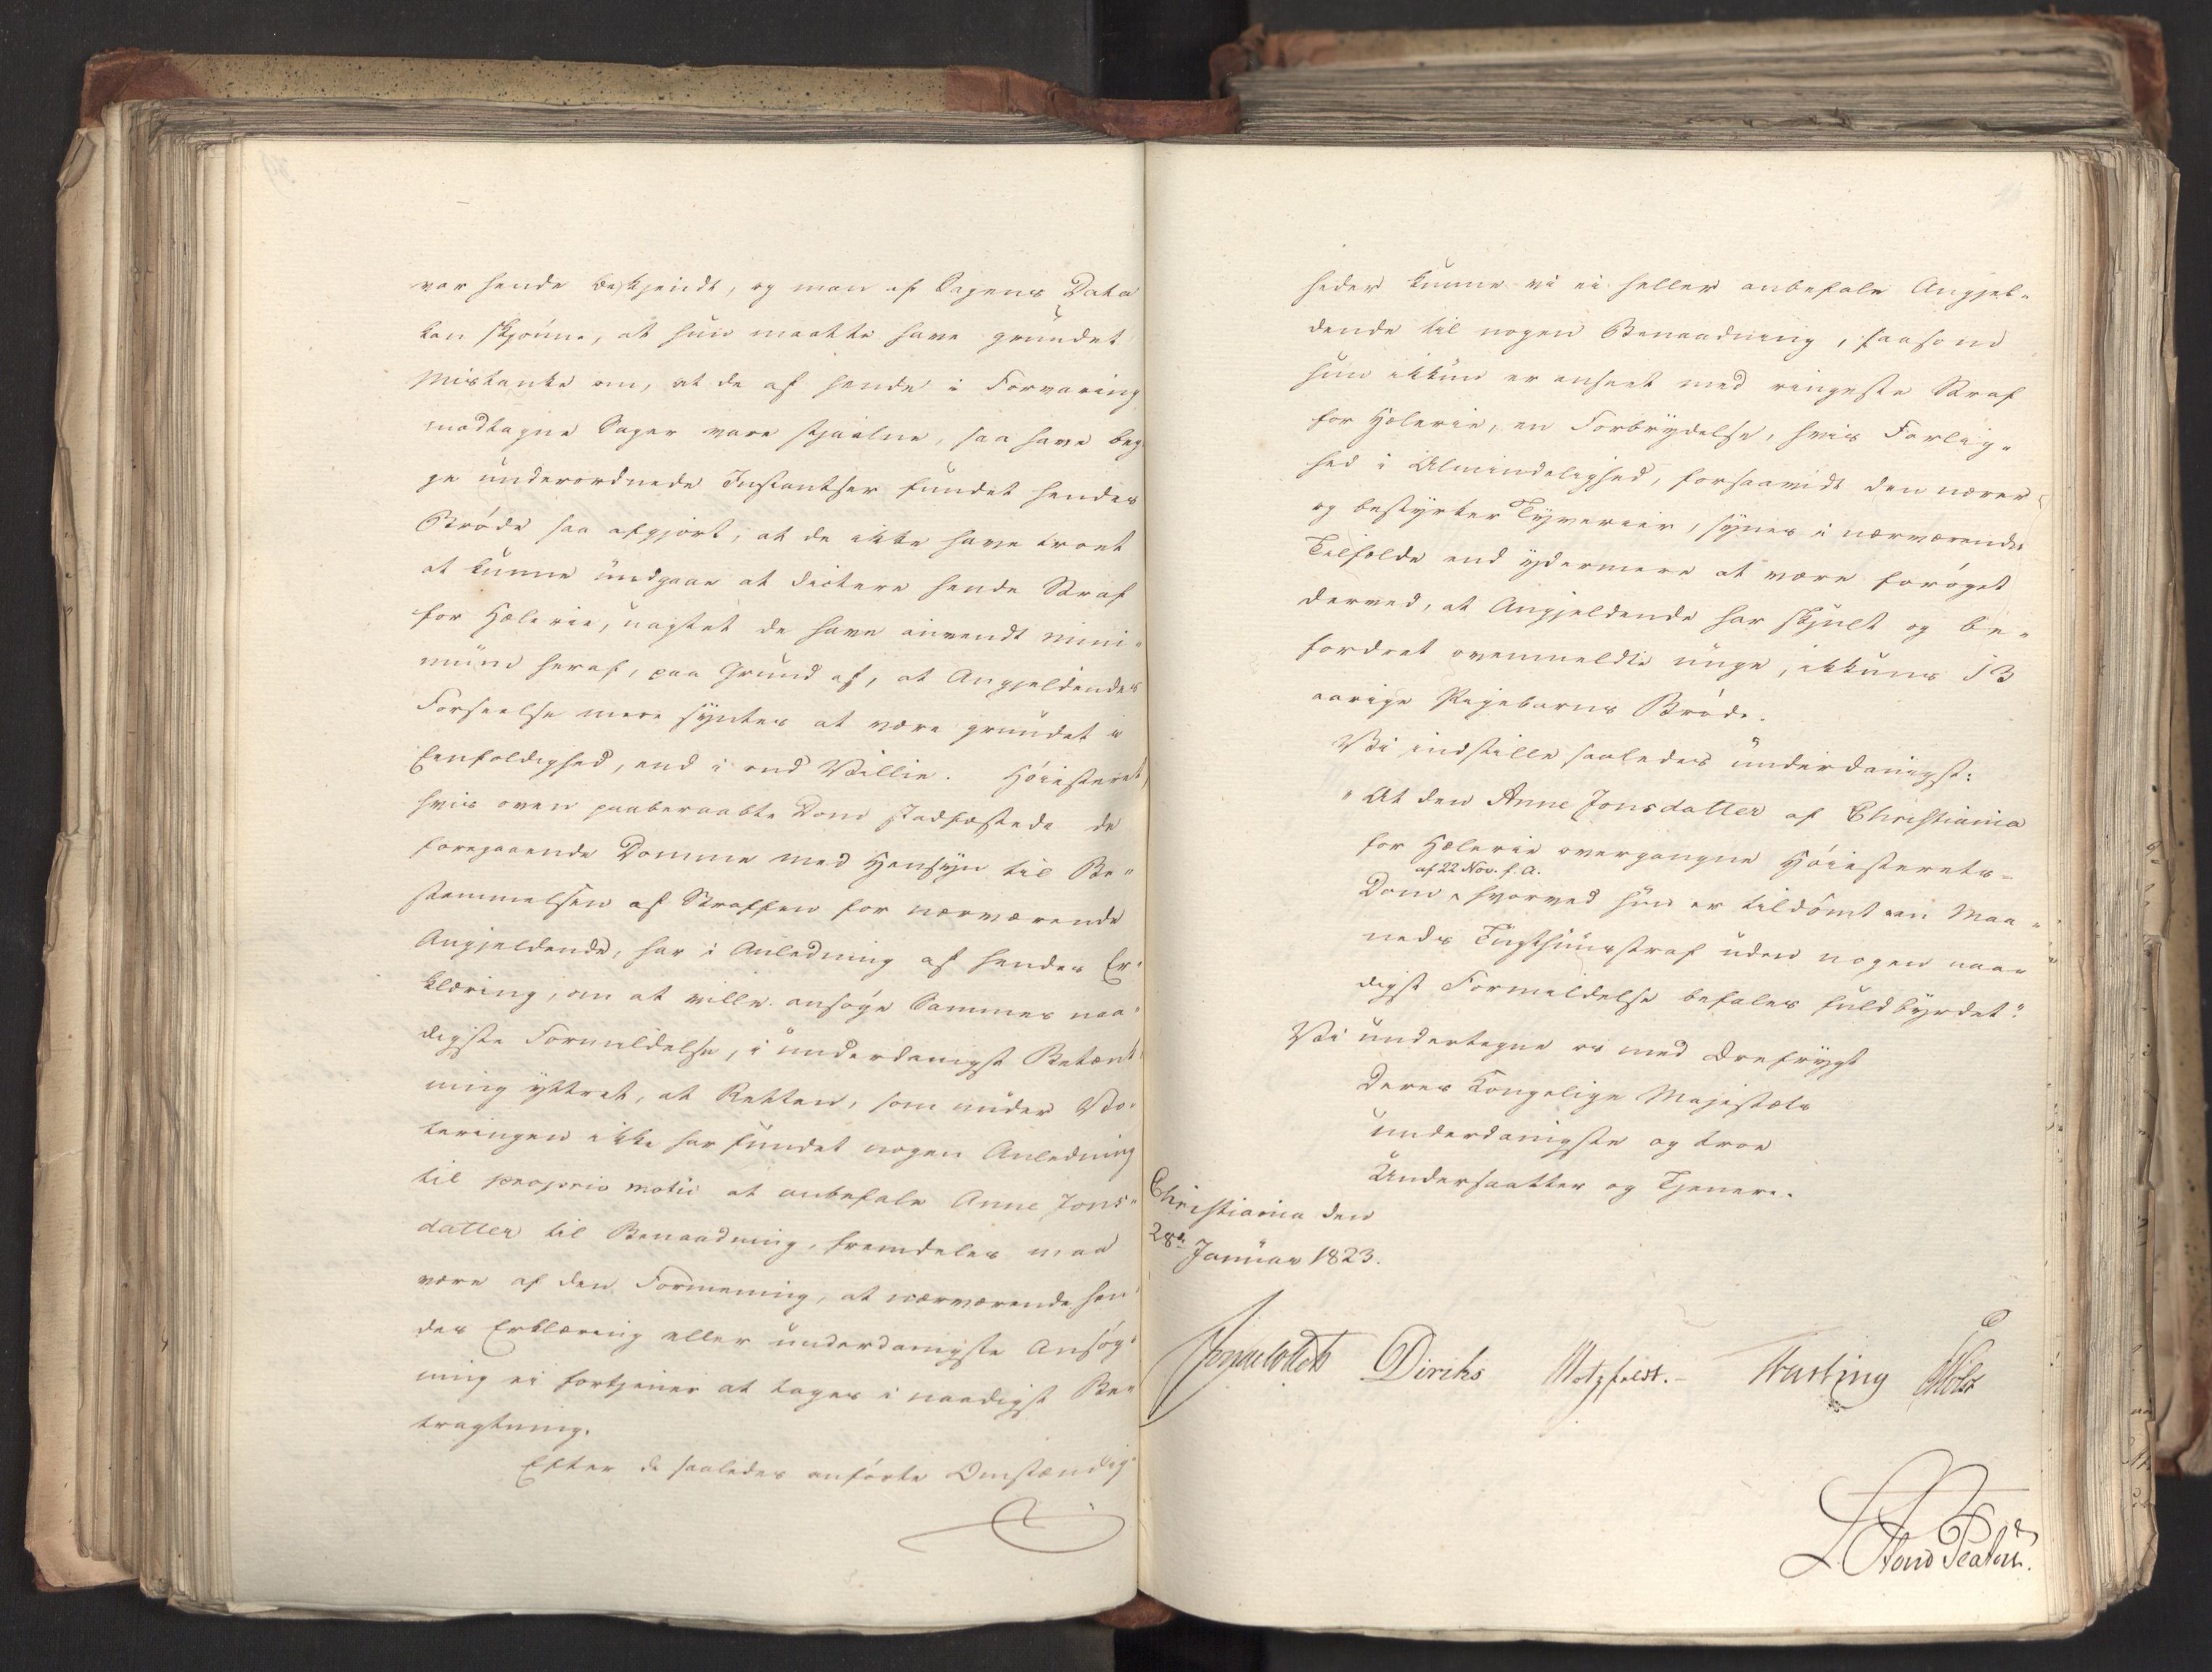 var hende bekjendt, og man af Sagens Data
kan skjønne, at hun maatte have grundet
Mistanke om, at de af hende i Forvaring
modtagne Sager vare stjaalne, saa have beg
ge underordnede Instantser fundet hendes
Brøde saa afgjort, at de ikke have troet
at kunne undgaae at dictere hende Straf
for Hælerie, uagtet de have anvendt mini-
mum heraf, paa Grund af, at Angjeldendes
Forseelse mere syntes at være grundet i
Eenfoldighed, end i ond Villie. Høiesteret,
hvis oven paaberaabte Dom stadfæstede de
foregaaende Domme med Hensyn til Be-
stemmelsen af Straffen for nærværende
Angjeldende, har i Anledning af hendes Er-
klæring, om at ville ansøge Sammes naa-
digste Formildelse, i underdanigst Betænk
ning yttret, at Retten, som under Vo-
teringen ikke har fundet nogen Anledning
til proprio motu at anbefale Anne Jons-
datter til Benaadning, fremdeles maa
være af den Formening, at nærværende hen-
des Erklæring eller underdanigste Ansøg-
ning ei fortjener at tages i naadigst Be-
tragtning.
Efter de saaledes anførte Omstændig-
heder kunne vi ei heller anbefale Angjel-
dende til nogen Benaadning, saasom
hun ikkun er anseet med ringeste Straf
for Hælerie, en Forbrydelse, hvis Farlig-
hed i Almindelighed, forsaavidt den nærer
og bestyrker Tyverier, synes i nærværende
Tilfælde end ydermere at være forøget
derved, at Angjeldende har skjult og be-
fordret ovenmeldte unge, ikkuns 13
aarige Pigebarns Brøde.
Vi indstille saaledes underdanigst:
"At den Anne Jonsdatter af Christiania
for Hælerie overgangne Høiesterets-
af 22 Nov. f. A.
Dom, hvorved hun er tildømt een Maa-
neds Tugthuusstraf uden nogen naa-
digst Formildelse befales fuldbyrdet."
Vi undertegne os med Ærefrygt
Deres Kongelige Majestæts
underdanigste og troe
Undersaatter og Tjenere.
Christiania den
28de Januar 1823.
Diriks Motzfeldt. Fasting Holst